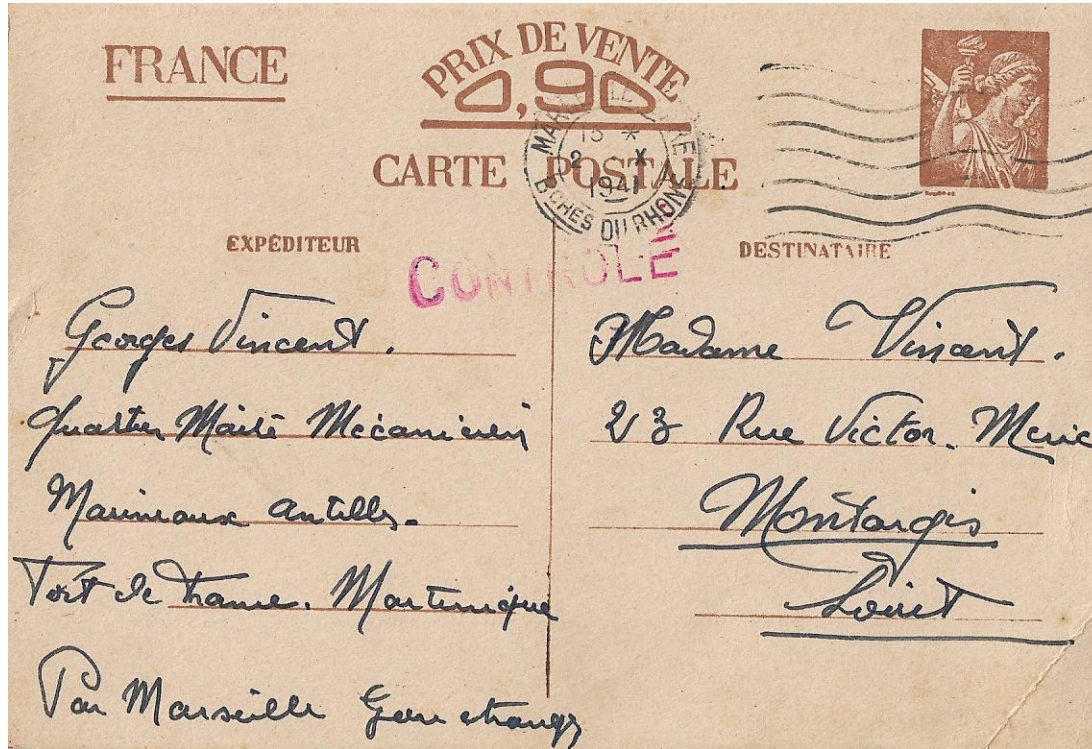 FRANCE
PRIX DE VENTE
0,90
CARTE POSTALE
15 *
2 X
1941
BCHES DU RHONE
EXPÉDITEUR
CONTRÔLÉ
Georges Vincent.
Quartier Maître Mécanicien
Marine aux Antilles.
Fort de France. Martinique
Par Marseille Gare étranger
DESTINATAIRE
Madame Vincent.
23 Rue Victor.
Montargis
Loiret